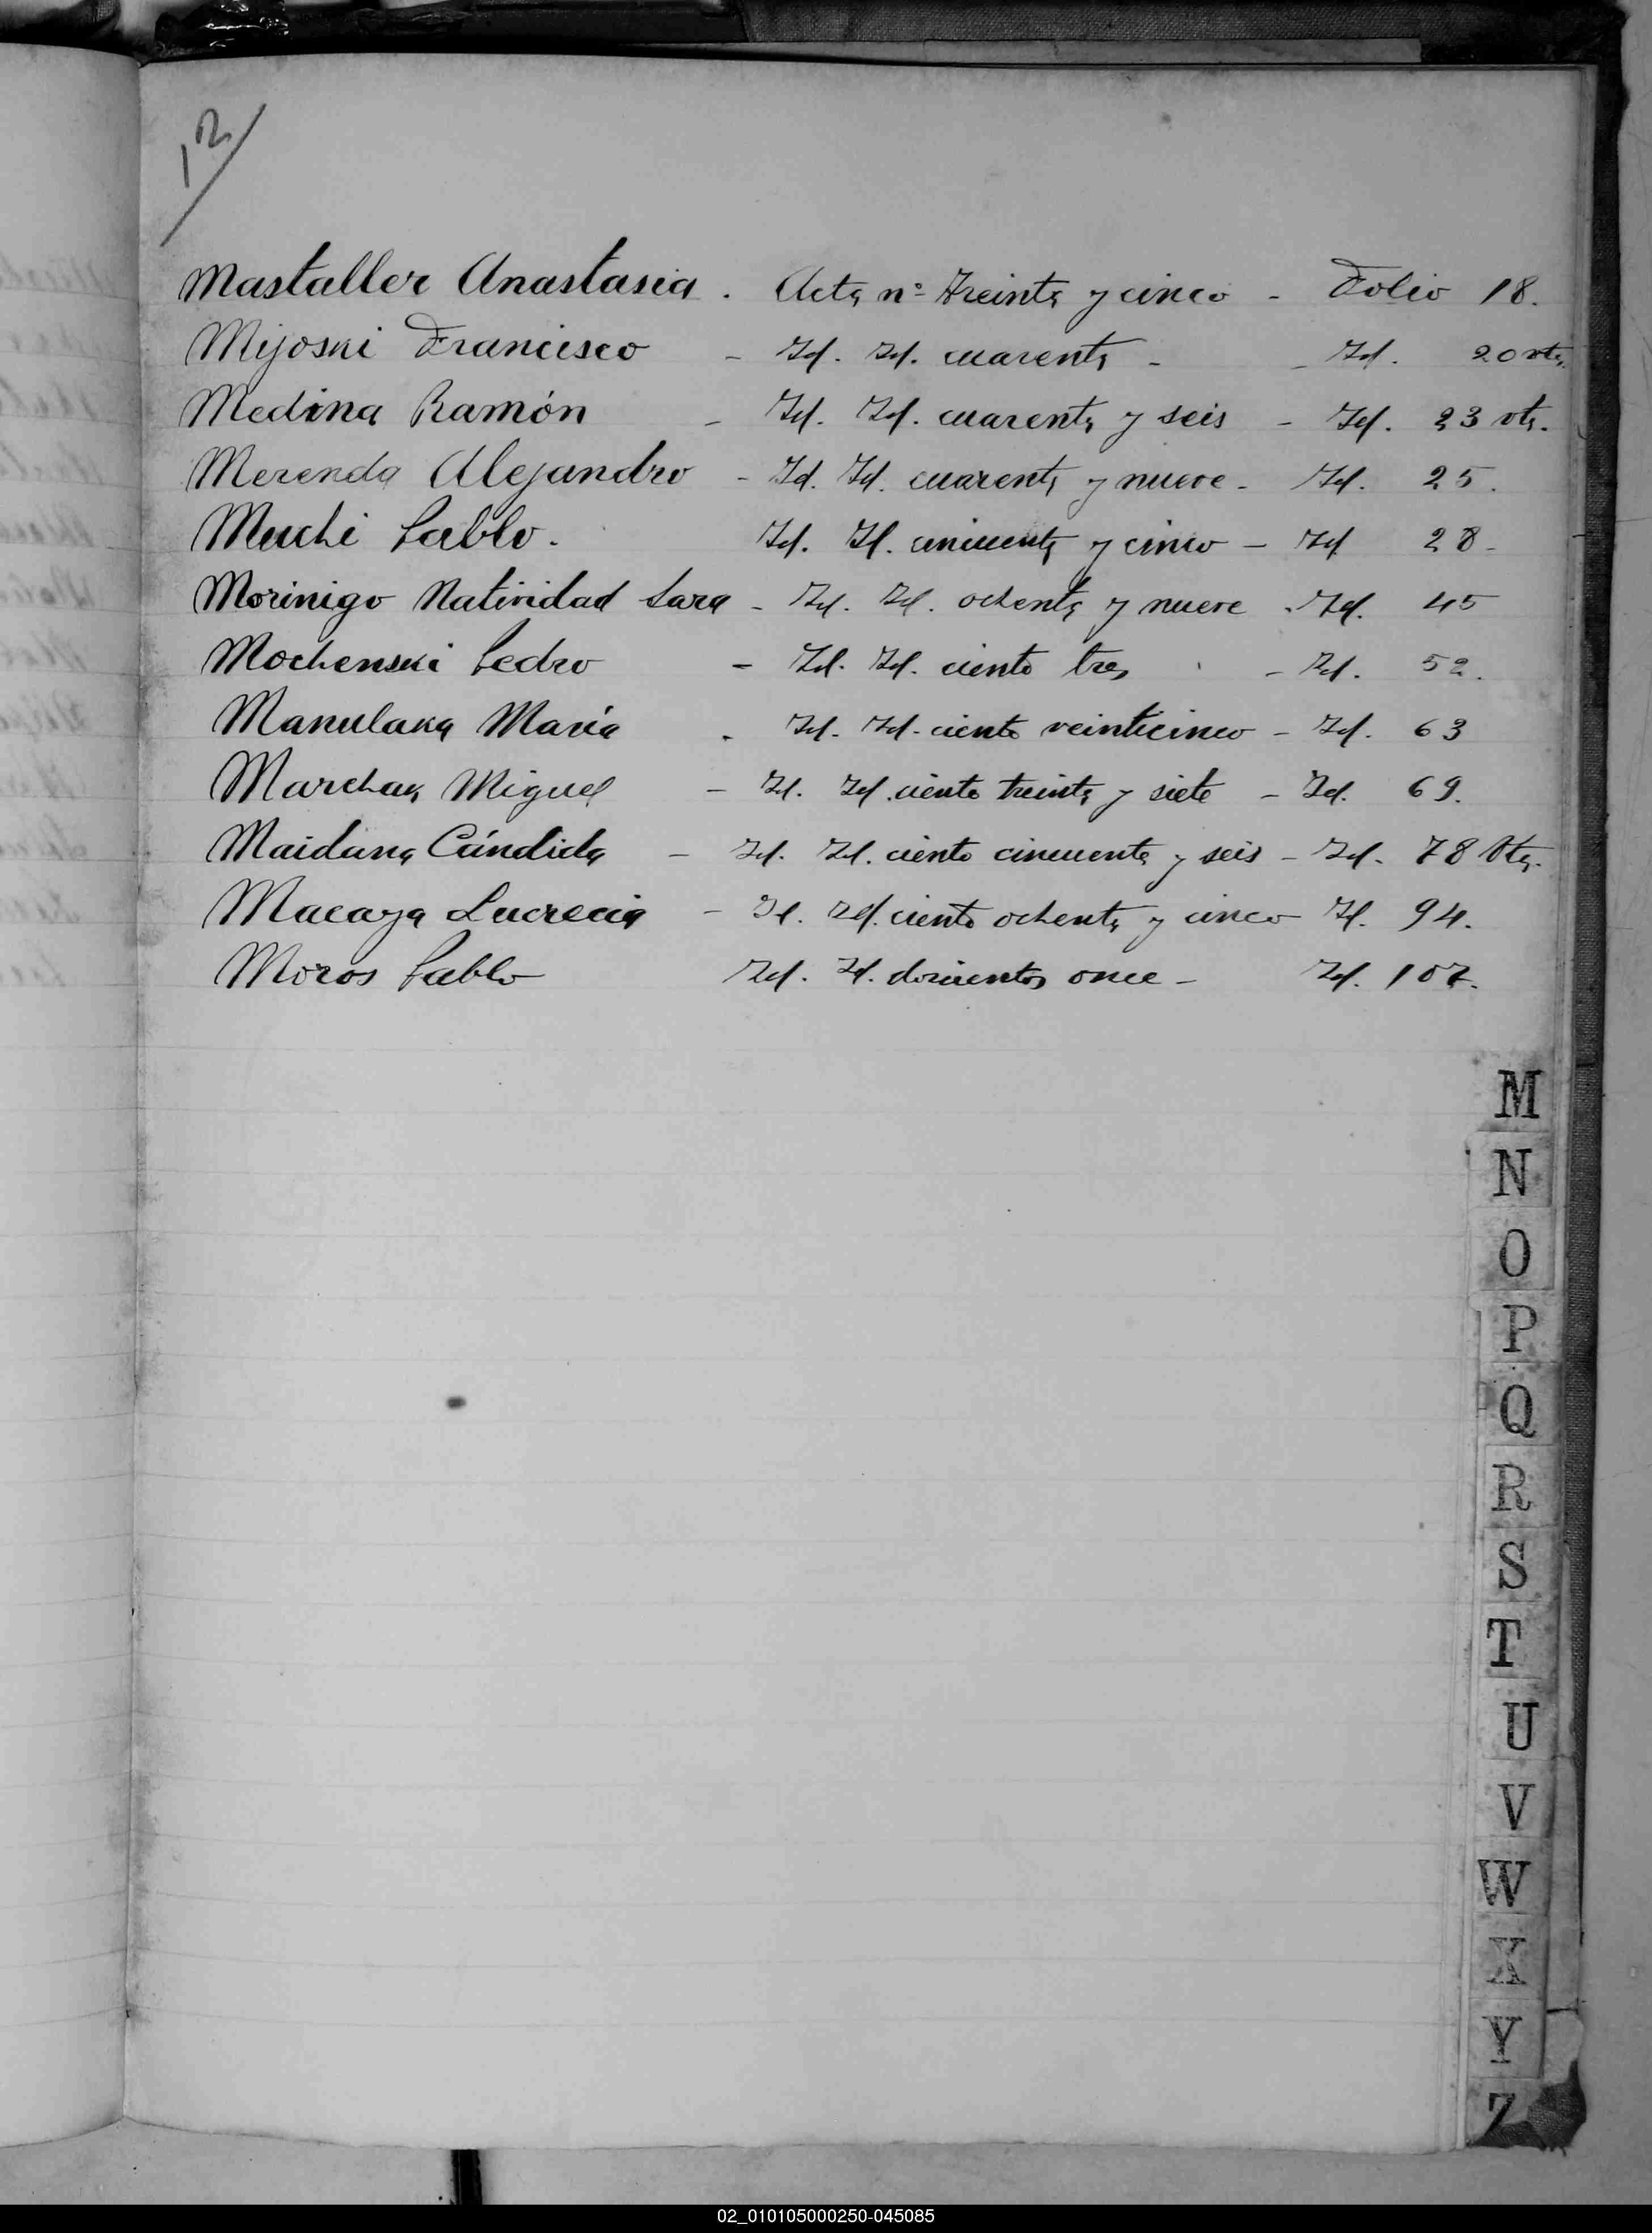 12
Mastaller Anastasia. Acta nº treinta y cinco - Folio 18.
Mijoski Francisco - Id. Id. cuarenta - - Id. 20 vta.
Medina Ramón - Id. Id. cuarenta y seis - Id. 23 vta.
Merenda Alejandro - Id. Id. cuarenta y nueve - Id. 25.
Muchi Pablo. Id. Id. cincuenta y cinco - Id 28 -
Morinigo Natividad Sara - Id. Id. ochenta y nueve - Id. 45
Mochenski Pedro - Id. Id. ciento tres - Id. 52.
Manulaka María - Id. Id. ciento veinticinco - Id. 63
Marchak Miguel - Id. Id. ciento treinta y siete - Id. 69.
Maidana Cándida - Id. Id. ciento cincuenta y seis - Id. 78 Vta.
Macaya Lucrecia - Id. Id. ciento ochenta y cinco Id. 94.
Moros Pablo Id. Id. doscientos once - Id. 107.
M
N
O
P
Q
R
S
T
U
V
W
X
Y
Z
02_010105000250-045085